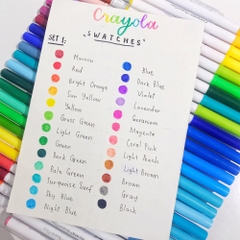 Crayola
"SWATCHES"
SET 1:
Maroon
Red
Bright Orange
Sun Yellow
Yellow
Grass Green
Light Green
Green
Dark Green
Pale Green
Turquoise Surf
Sky Blue
Night Blue
Blue
Dark
Violet
Lavender
Geranium
Magenta
Coral Pink
Light
Light Brown
Brown
Gray
Black